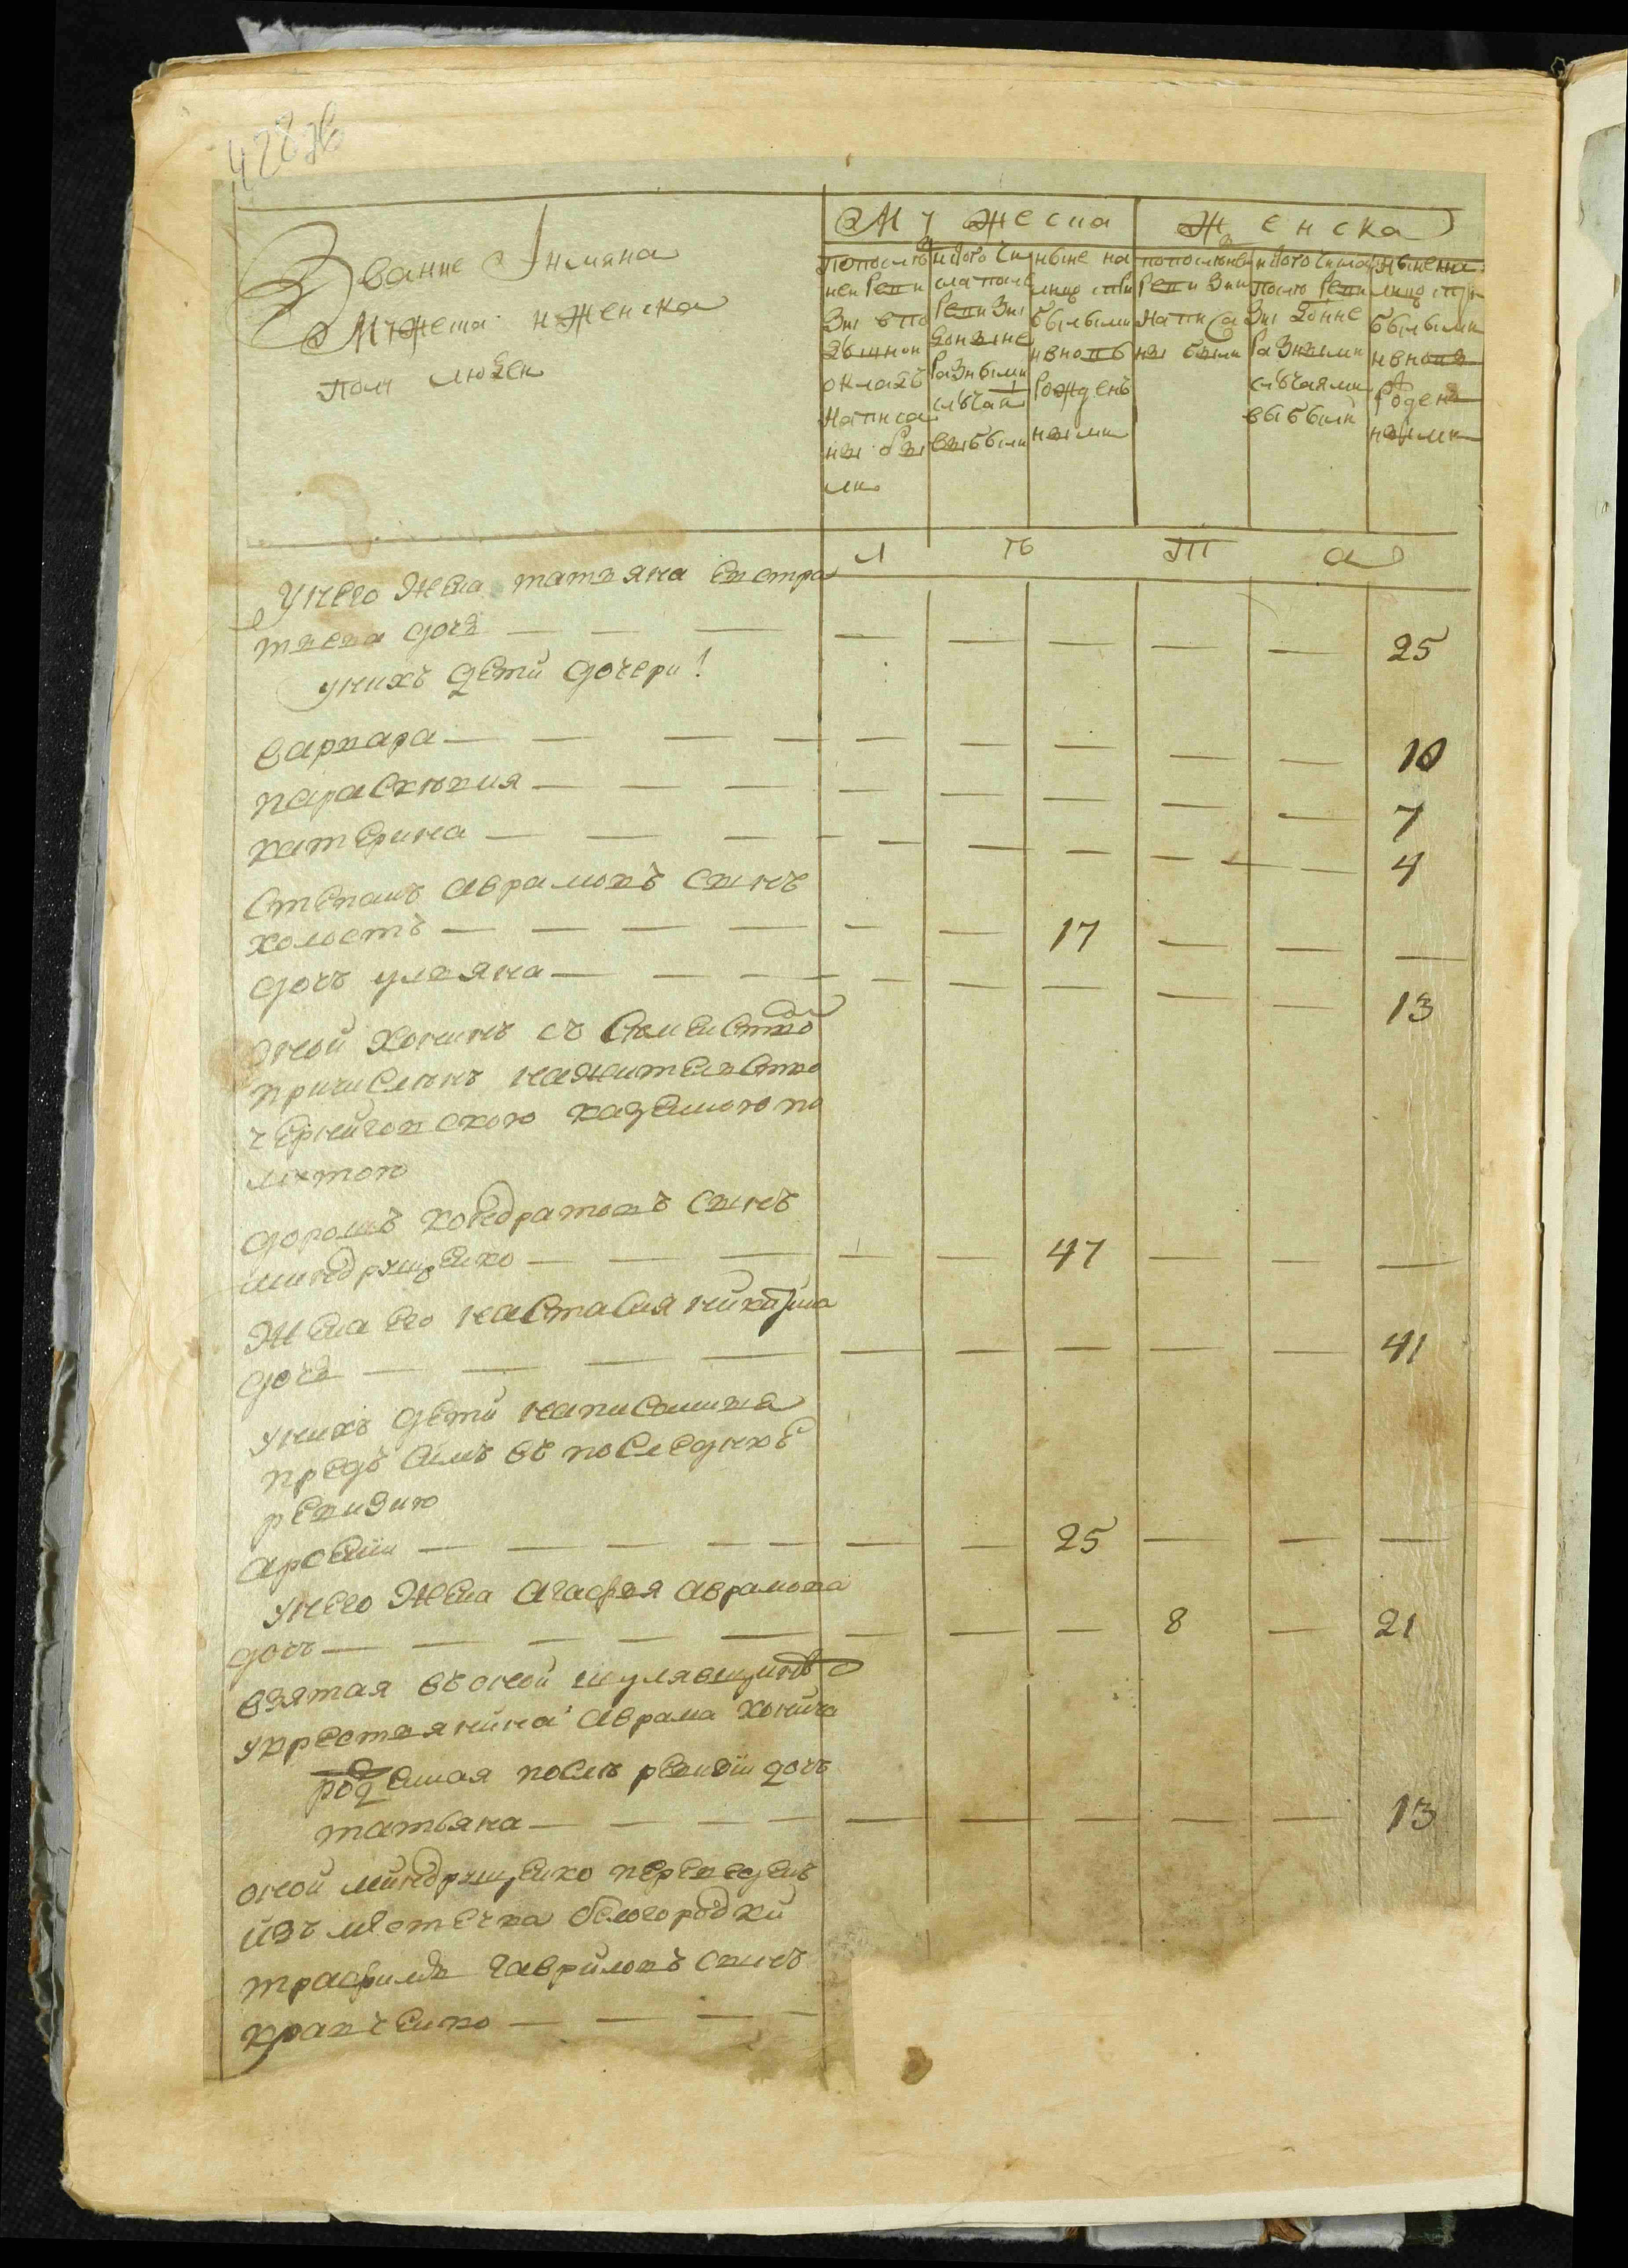 428 об
Звание Имяна
Мужеска и Женска
полу людей
Мужеска
Женска
По последней ревизии в подушном окладе написаны были
ис того числа после ревизии до ныне разными случаи выбыли
ныне на лицо с прибылыми и вновь рожденными
по последней ревизии написаны были
ис того числа после ревизии до ныне разными случаями выбыли
ныне на лицо с прибылыми и вновь рожденными
Л ѣ т а
у него жена татьяна евстра
тиева дочь — — — — — — — — 25
у нихъ дети дочери
варвара — — — — — — — — — 10
параскѣвия — — — — — — — — 7
катерина — — — — — — — — 4
степанъ аврамовъ сынъ
холостъ — — — — — — 17 — — —
дочъ уляна — — — — — — — — 13
оной хонинъ съ семейством
причисленъ на жительство
чернйговскою казенною па
латою
дорошъ кондратовъ сынъ
миндрущенко — — — — — 47 — — —
жена его настасия никитина
дочь — — — — — — — — — 41
у нихъ дети написанныя
предъ симъ въ последнюю
ревизию
арсений — — — — — — — 25 — — —
у него жена агафья аврамова
дочъ — — — — — — — — 8 — 21
взятая въ оной шулявщине
у крестьянина аврама хонича
рожденная послѣ ревизіи дочъ
татьяна — — — — — — — — — 13
оной миндрущенко переведенъ
изъ местечка белогородки
трафимъ гавриловъ сынъ
кравченко — — —